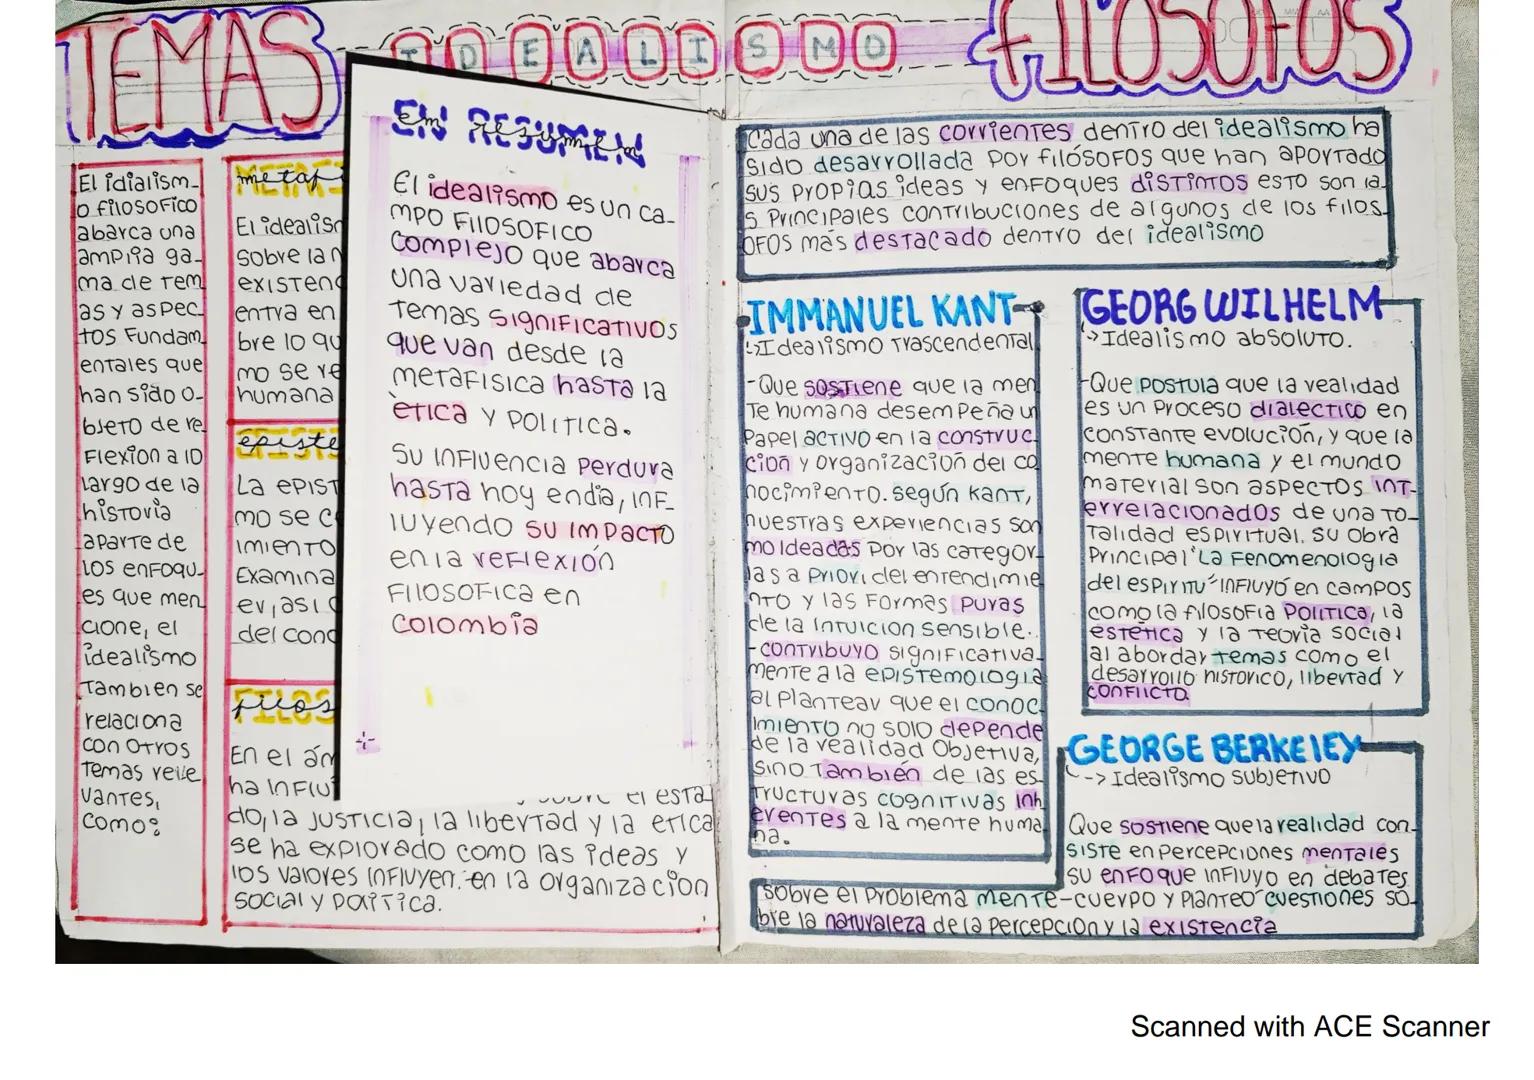 TEMAS
IDEALISMO
FILOSOFOS
El idialism-
o filosofico
abarca una
amplia ga-
ma de tem
as y aspec
tos Fundam
entales que
han sido o-
bjeto de re
Flexion a lo
largo de la
historia
aparte de
los enfoqu-
es que men
cione, el
idealismo
Tambien se
relaciona
con otros
temas rele
vantes,
como:
metafi
El idealism
sobre la n
existenc
entra en
bre lo qu
mo se re
humana
episte
La epist
mo se c
imiento
Examina
er, asi c
del cono
filos
En el ám
ha influi
el esta
do, la justicia, la libertad y la etica
se ha explorado como las ideas y
los valores influyen. en la organización
social y política.
EN RESUMEN
en resumen
El idealismo es un ca-
mpo Filosofico
complejo que abarca
una variedad de
temas significativos
que van desde la
metafisica hasta la
ètica y politica.
Su influencia perdura
hasta hoy en dia, inf-
luyendo su impacto
en la reflexión
Filosofica en
Colombia
Cada una de las corrientes dentro del idealismo ha
sido desarrollada por filósofos que han aportado
sus propias ideas y enfoques distintos esto son la
s principales contribuciones de algunos de los filos-
ofos más destacado dentro del idealismo
IMMANUEL KANT
Idealismo Trascendental
-Que sostiene que la men
te humana desempeña un
papel activo en la construc
ción y organización del co
nocimiento. según kant,
nuestras experiencias son
moldeadas por las categor-
ias a priori del entendimie
nto y las formas puras
de la intuicion sensible..
-contribuyo significativa-
mente a la epistemologia
al plantear que el conoc-
imiento no solo depende
de la realidad objetiva,
sino también de las es-
tructuras cognitivas inh
erentes a la mente huma
na.
GEORG WILHELM
Idealismo absoluto.
-Que postula que la realidad
es un proceso dialectico en
constante evolución, y que la
mente humana y el mundo
material son aspectos int-
errelacionados de una to-
talidad espiritual. su obra
principal "La Fenomenologia
del espiritu" influyó en campos
como la filosofia politica, la
estética y la teoria social
al abordar temas como el
desarrollo historico, libertad y
conflicto
GEORGE BERKELEY
--> Idealismo subjetivo
Que sostiene que la realidad con-
siste en percepciones mentales
su enfoque influyo en debates
sobre el problema mente-cuerpo y planteo cuestiones so-
bre la naturaleza de la percepcion y la existencia
Scanned with ACE Scanner